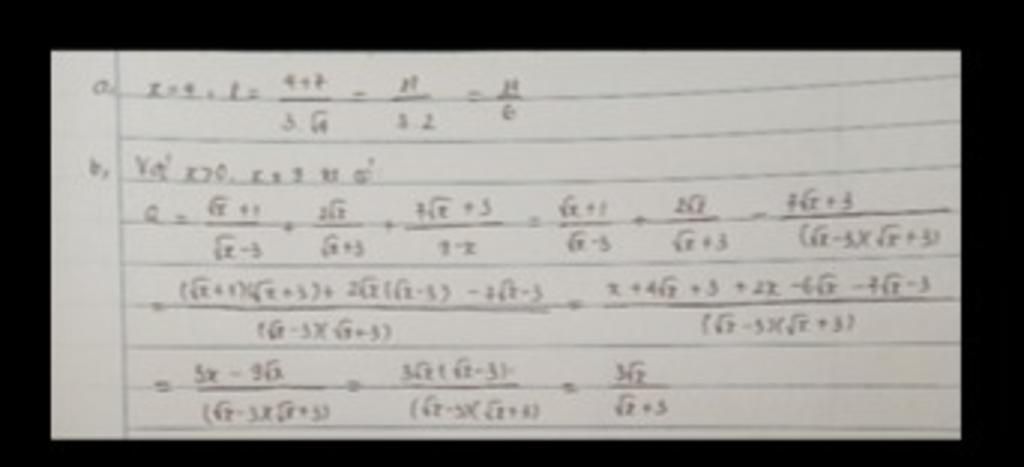 a, x = 4, P = \frac{4+7}{3.\sqrt{4}} = \frac{11}{3.2} = \frac{11}{6}
b, Với x>0, x ≠ 9 ta có
Q = \frac{\sqrt{x}+1}{\sqrt{x}-3} + \frac{2\sqrt{x}}{\sqrt{x}+3} + \frac{7\sqrt{x}+3}{9-x} = \frac{\sqrt{x}+1}{\sqrt{x}-3} + \frac{2\sqrt{x}}{\sqrt{x}+3} - \frac{7\sqrt{x}+3}{(\sqrt{x}-3)(\sqrt{x}+3)}
= \frac{(\sqrt{x}+1)(\sqrt{x}+3)+2\sqrt{x}(\sqrt{x}-3)-7\sqrt{x}-3}{(\sqrt{x}-3)(\sqrt{x}+3)} = \frac{x+4\sqrt{x}+3+2x-6\sqrt{x}-7\sqrt{x}-3}{(\sqrt{x}-3)(\sqrt{x}+3)}
= \frac{3x-9\sqrt{x}}{(\sqrt{x}-3)(\sqrt{x}+3)} = \frac{3\sqrt{x}(\sqrt{x}-3)}{(\sqrt{x}-3)(\sqrt{x}+3)} = \frac{3\sqrt{x}}{\sqrt{x}+3}